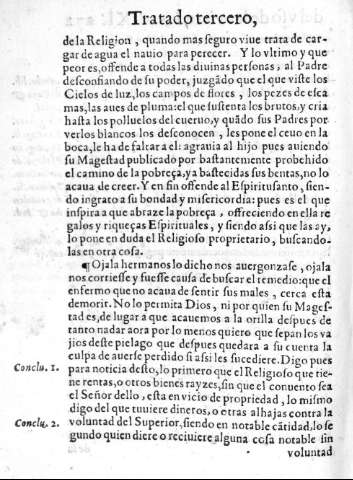 Tratado tercero,
de la Religion, quando mas seguro viue trata de car-
gar de agua el nauio para perecer. Y lo vltimo y que
peor es, offende a todas las diuinas personas, al Padre
desconfiando de su poder, juzgãdo que el que viste los
Cielos de luz, los campos de flores, los pezes de esca
mas, las aues de pluma: el que sustenta los brutos, y cria
hasta los polluelos del cueruo, y quãdo sus Padres por
verlos blancos los desconocen, les pone el ceuo en la
boca, le ha de faltar a el: agrauia al hijo pues auiendo
su Magestad publicado por bastantemente probehido
el camino de la pobreça, y abastecidas sus bentas, no lo
acaua de creer. Y en fin offende al Espiritusanto, sien-
do ingrato a su bondad y misericordia: pues es el que
inspira a que abraze la pobreça, offreciendo en ella re
galos y riqueças Espirituales, y siendo assi que las ay,
lo pone en duda el Religioso proprietario, buscando-
las en otra cosa.
¶Ojala hermanos lo dicho nos auergonzase, ojala
nos corriesse y fuesse causa de buscar el remedio: que el
enfermo que no acaua de sentir sus males, cerca esta
de morir. No lo permita Dios, ni por quien su Mages-
tad es, de lugar a que acauemos a la orilla despues de
tanto nadar aora por lo menos quiero que sepan los va
jios deste pielago que despues quedara a su cuenta la
culpa de auerse perdido si assi les sucediere. Digo pues
Conclu. 1. para noticia desto, lo primero que el Religioso que tie-
ne rentas, o otros bienes rayzes, sin que el conuento sea
el Señor dello, esta en vicio de propriedad, lo mismo
digo del que tuuiere dineros, o otras alhajas contra la
Conclu. 2. voluntad del Superior, siendo en notable cãtidad, lo se
gundo quien diere o reciuiere alguna cosa notable sin
voluntad